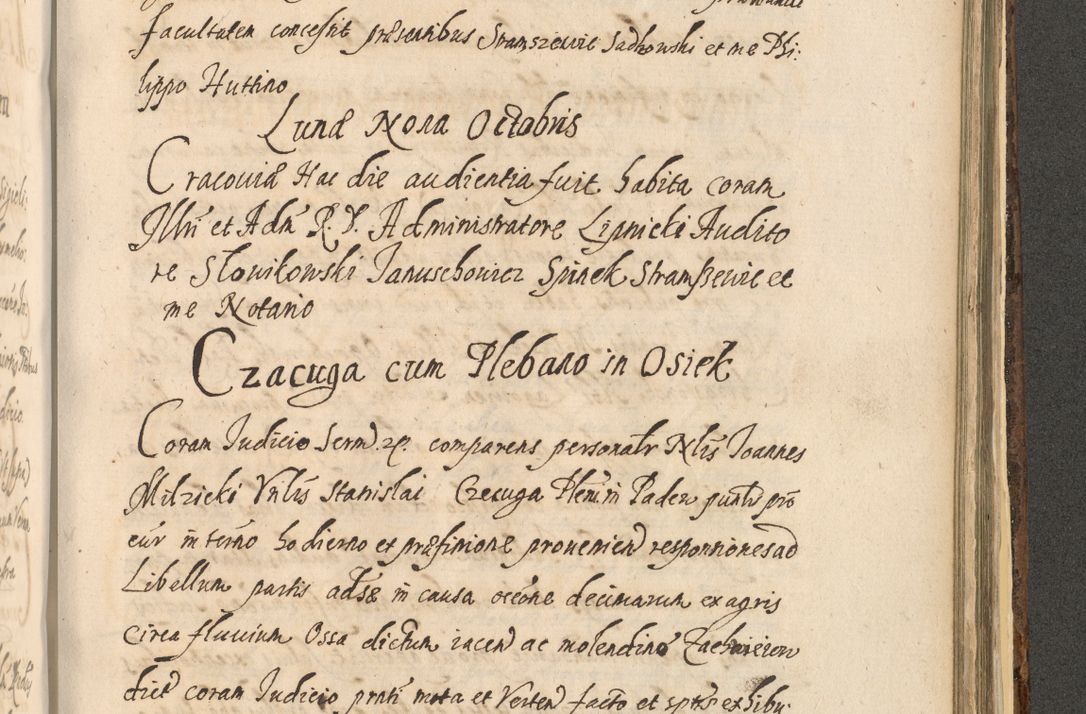 facultatem concessit præsentibus Stramszewic Sadkowski et me Phi:
lippo Huttino
Lunæ Nona Octobris
Cracoviæ Hac die audientia fuit habita coram
Illri et Adm R. D. Administratore Lipnicki Audito
re Słowikowski Januschowicz Spinek Stramszewic et
me Notario
Czacuga cum Plebano in Osiek
Coram Judicio comparens personalr Nlis Joannes
Milzicki Vnlis Stanislai Czecuga Pleni in Padew
eur in termo hodierno et præfinione provenien responsiones ad
Libellum partis adsæ in causa occone decimarum ex agris
circa fluvium Ossa dictum iacen ac molendino
dict coram Judicio pnti mota et Verten facto et exhibu: